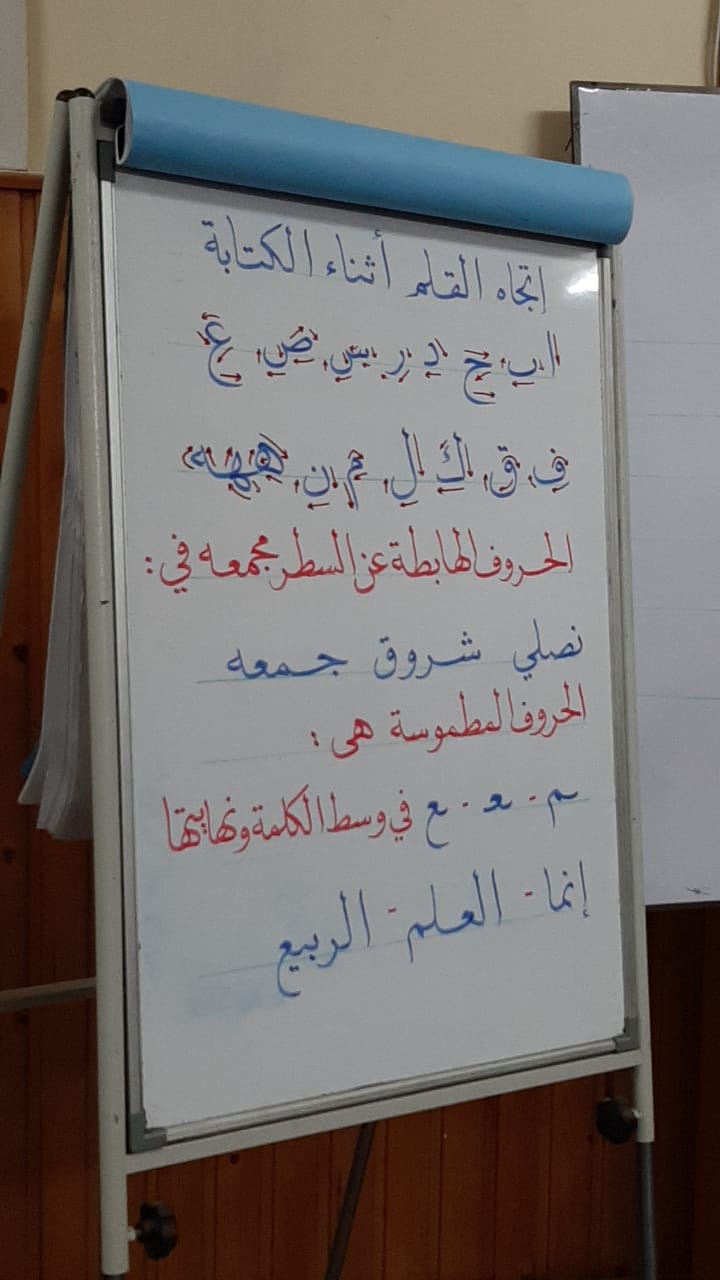 إتجاه القلم أثناء الكتابة
ا ب ج د ر س ض ع
ف ق ك ل م ن هـهـه
الحروف الهابطة عن السطر مجمعه في :
نصلي شروق جمعه
الحروف المطموسة هى :
م - ع - ع في وسط الكلمة ونهايتها
إنما - العلم - الربيع